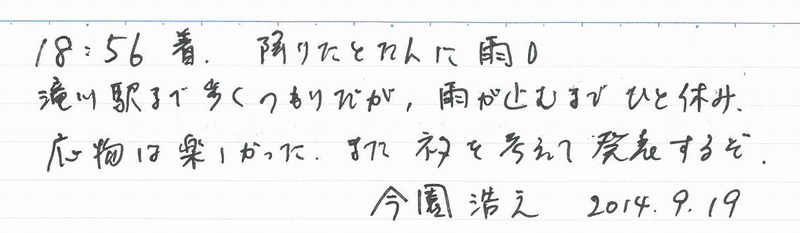 18:56 着. 降りたとたんに 雨()
滝川駅まで歩くつもりだが, 雨が止むまでひと休み.
応物は楽しかった. また ネタを考えて発表するぞ.
今園 浩之 2014.9.19